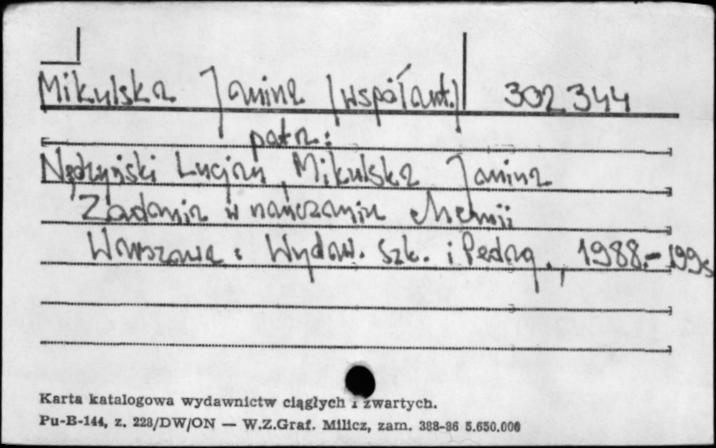 Mikulska Janina (współaut.) 302.344
patrz:
Nędzyński Lucjan, Mikulska Janina
Zadania w nauczaniu chemii
Warszawa : Wydaw. Szk. i Pedag., 1988.- 199s
Karta katalogowa wydawnictw ciągłych i zwartych.
Pu-B-144, z. 228/DW/ON — W.Z.Graf. Milicz, zam. 388-86 5.650.000